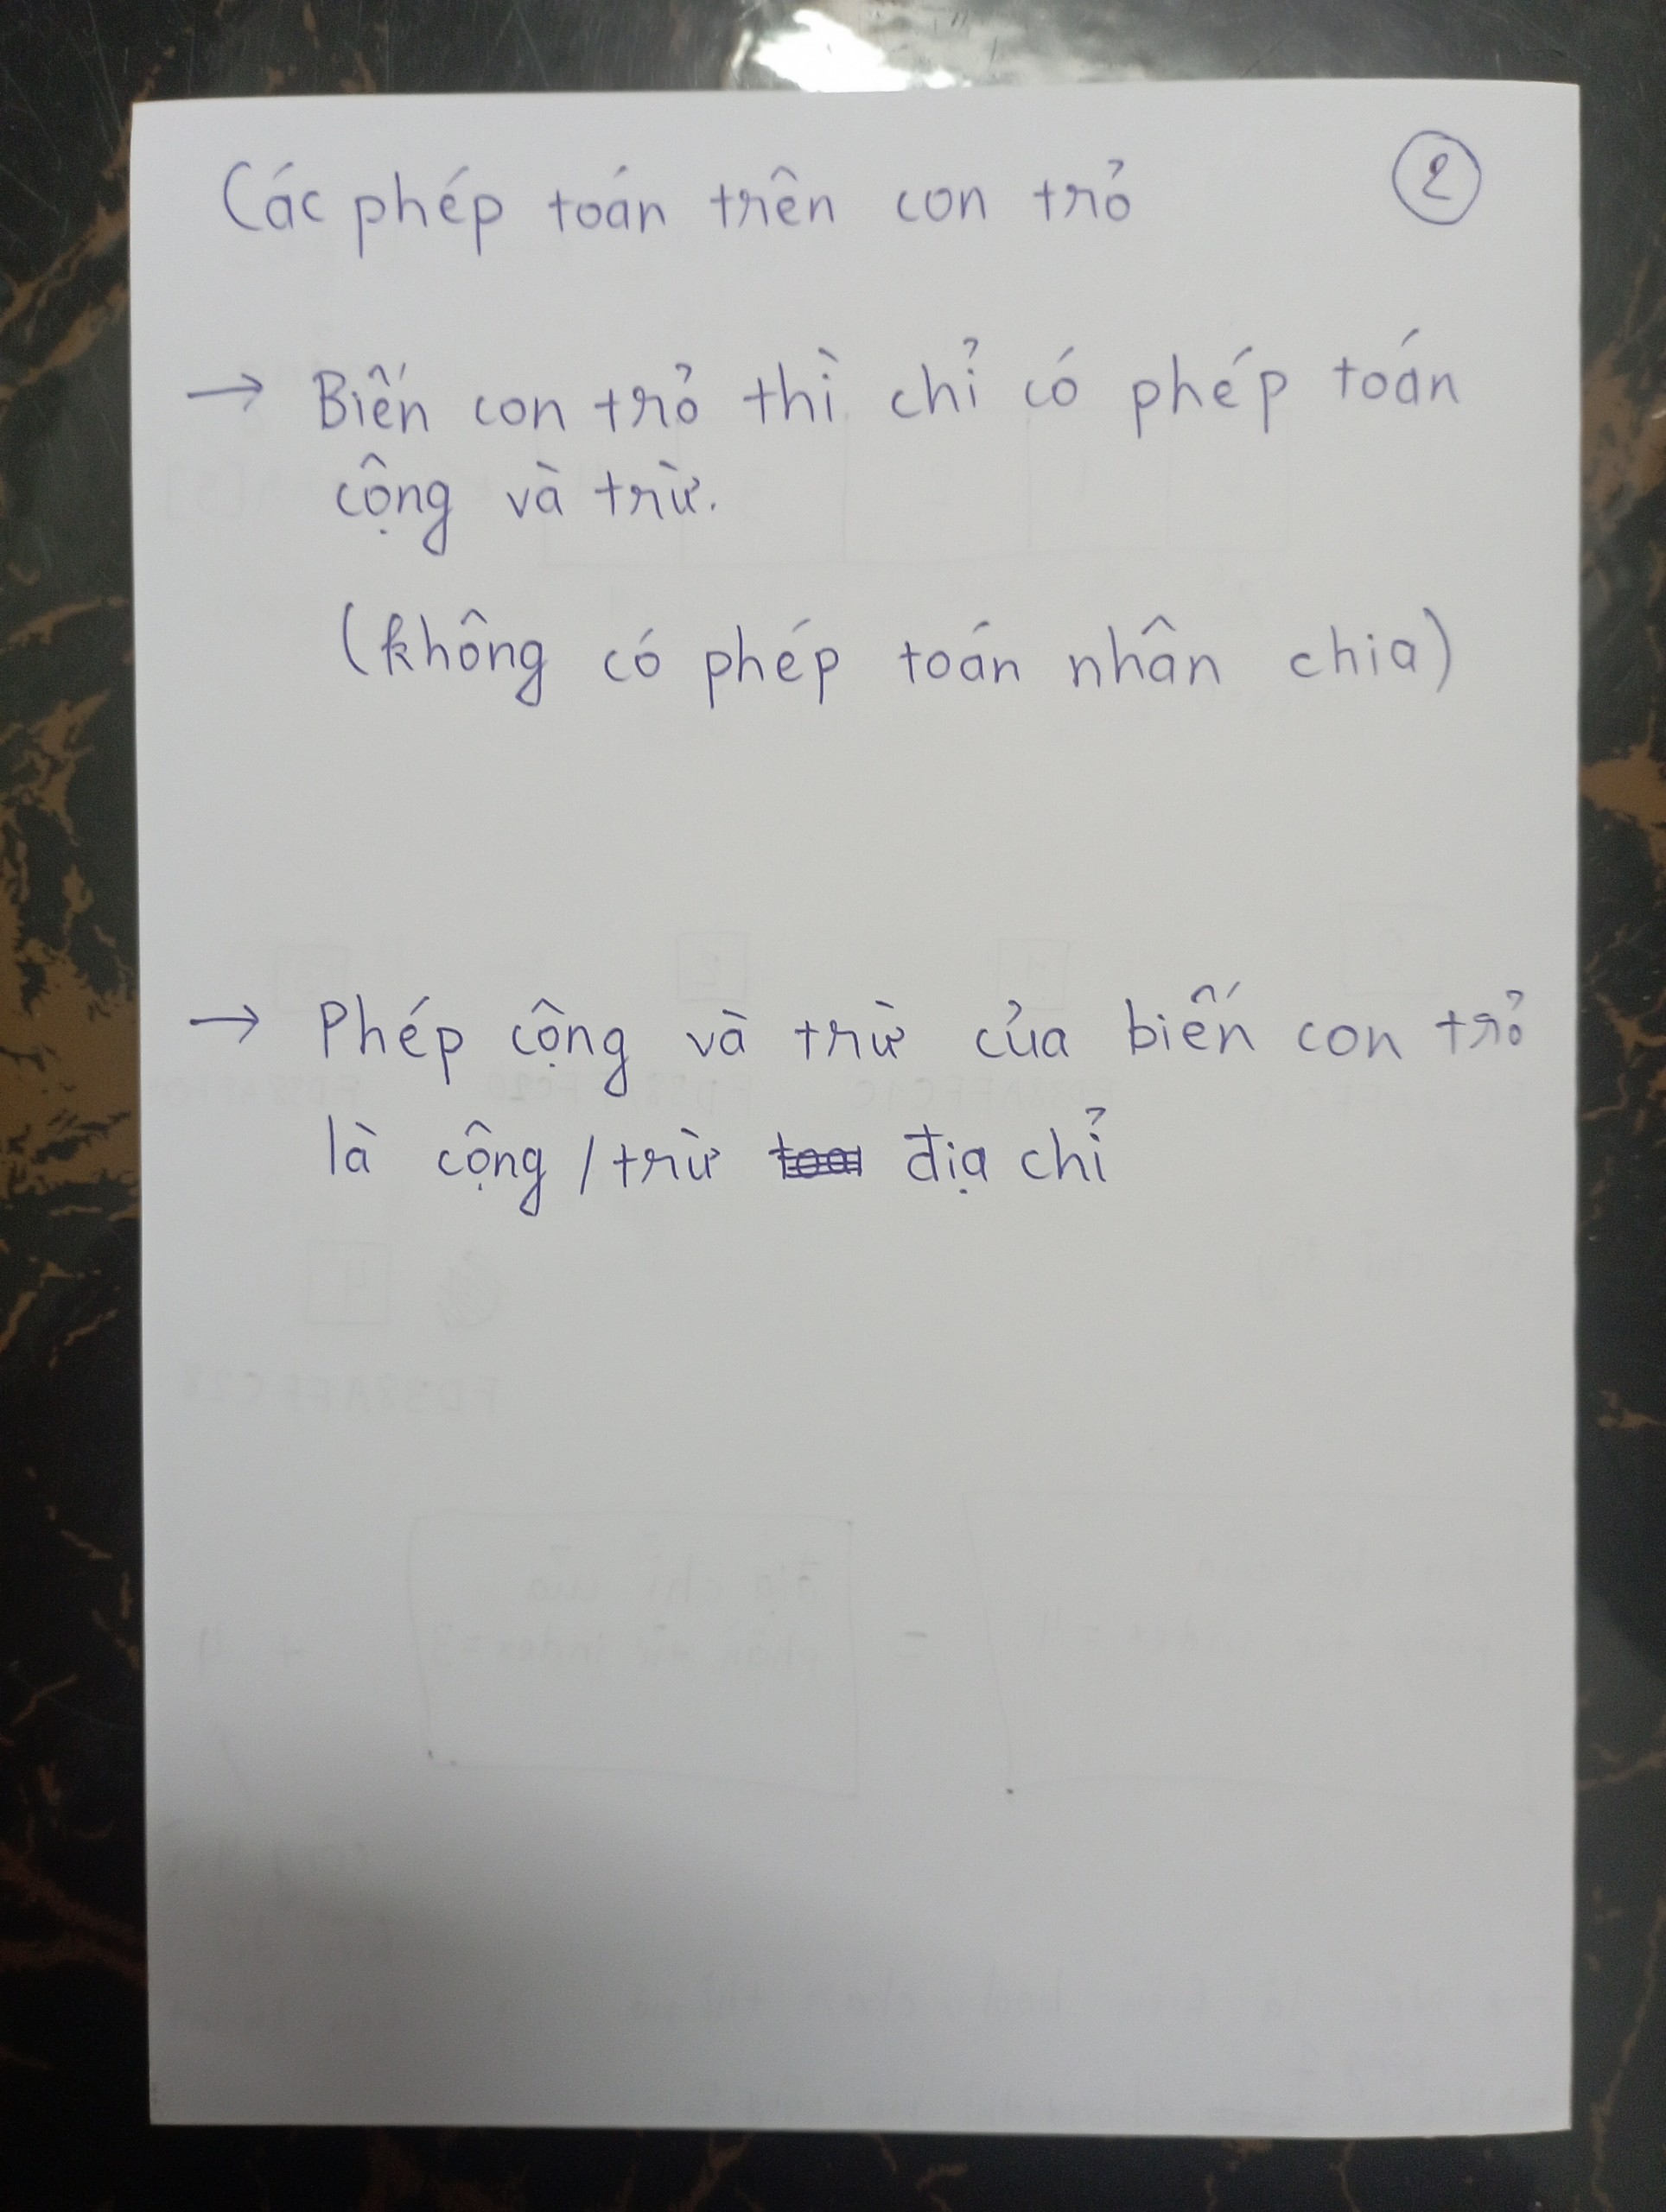 Các phép toán trên con trỏ
2
→ Biến con trỏ thì chỉ có phép toán
cộng và trừ.
(không có phép toán nhân chia)
→ Phép cộng và trừ của biến con trỏ
là cộng / trừ địa chỉ